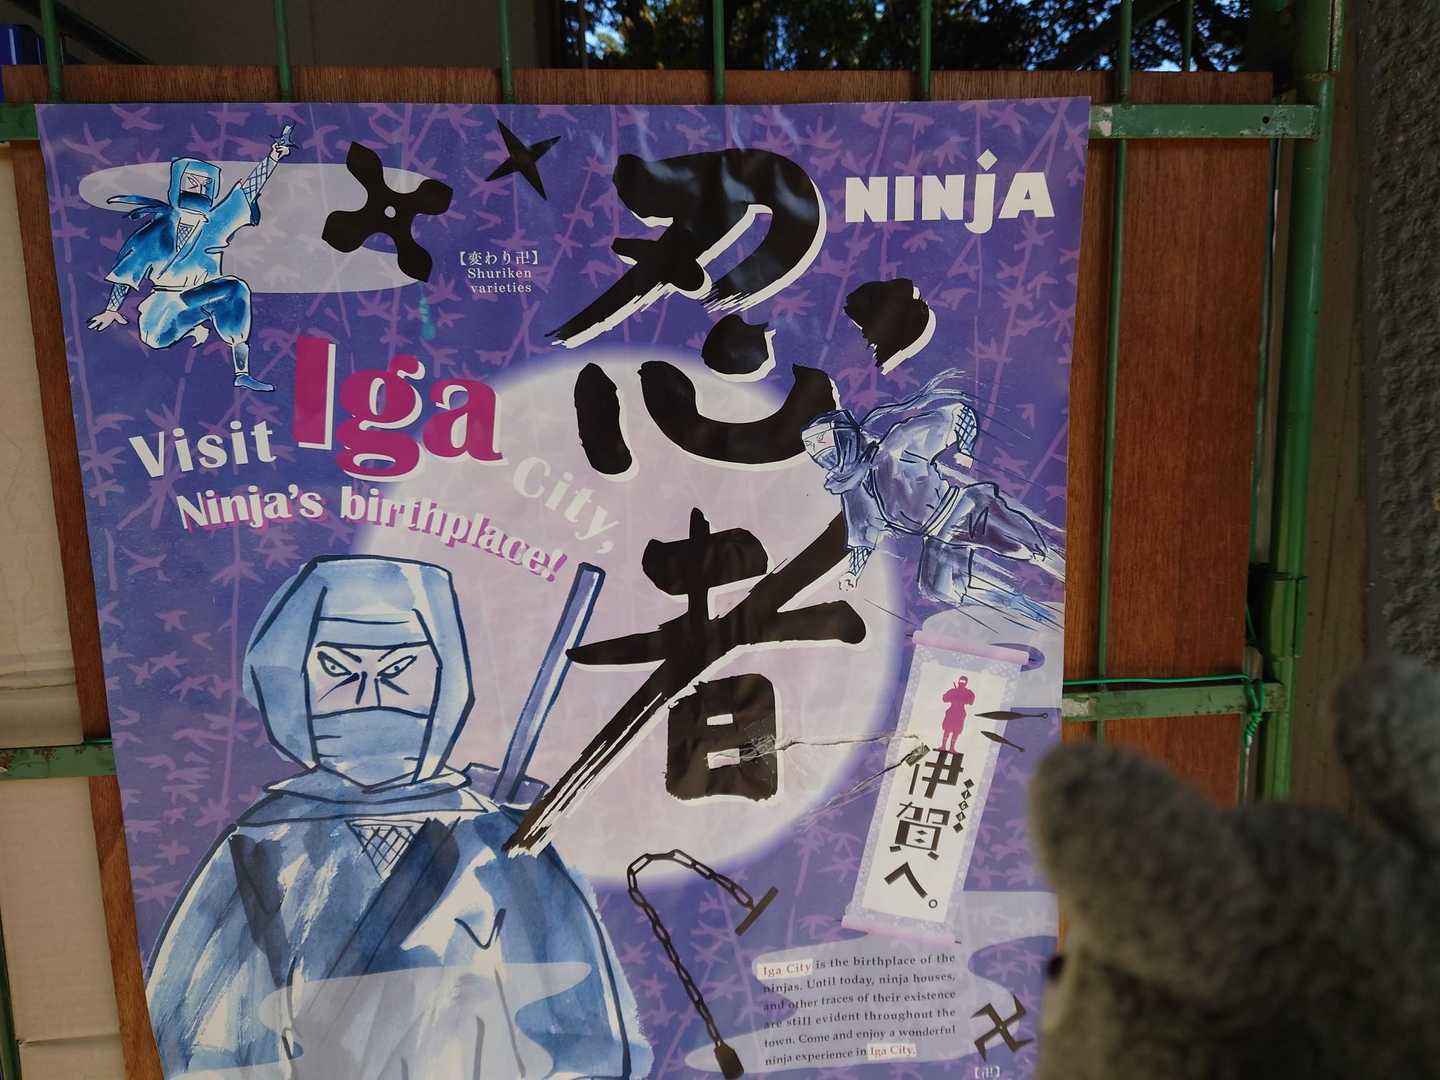 NINjA
忍者
【変わり卍】
Shuriken
varieties
Visit Iga City,
Ninja's birthplace!
伊賀へ。
IGA
Iga City is the birthplace of the
ninjas. Until today, ninja houses,
and other traces of their existence
are still evident throughout the
town. Come and enjoy a wonderful
ninja experience in Iga City.
【卍】